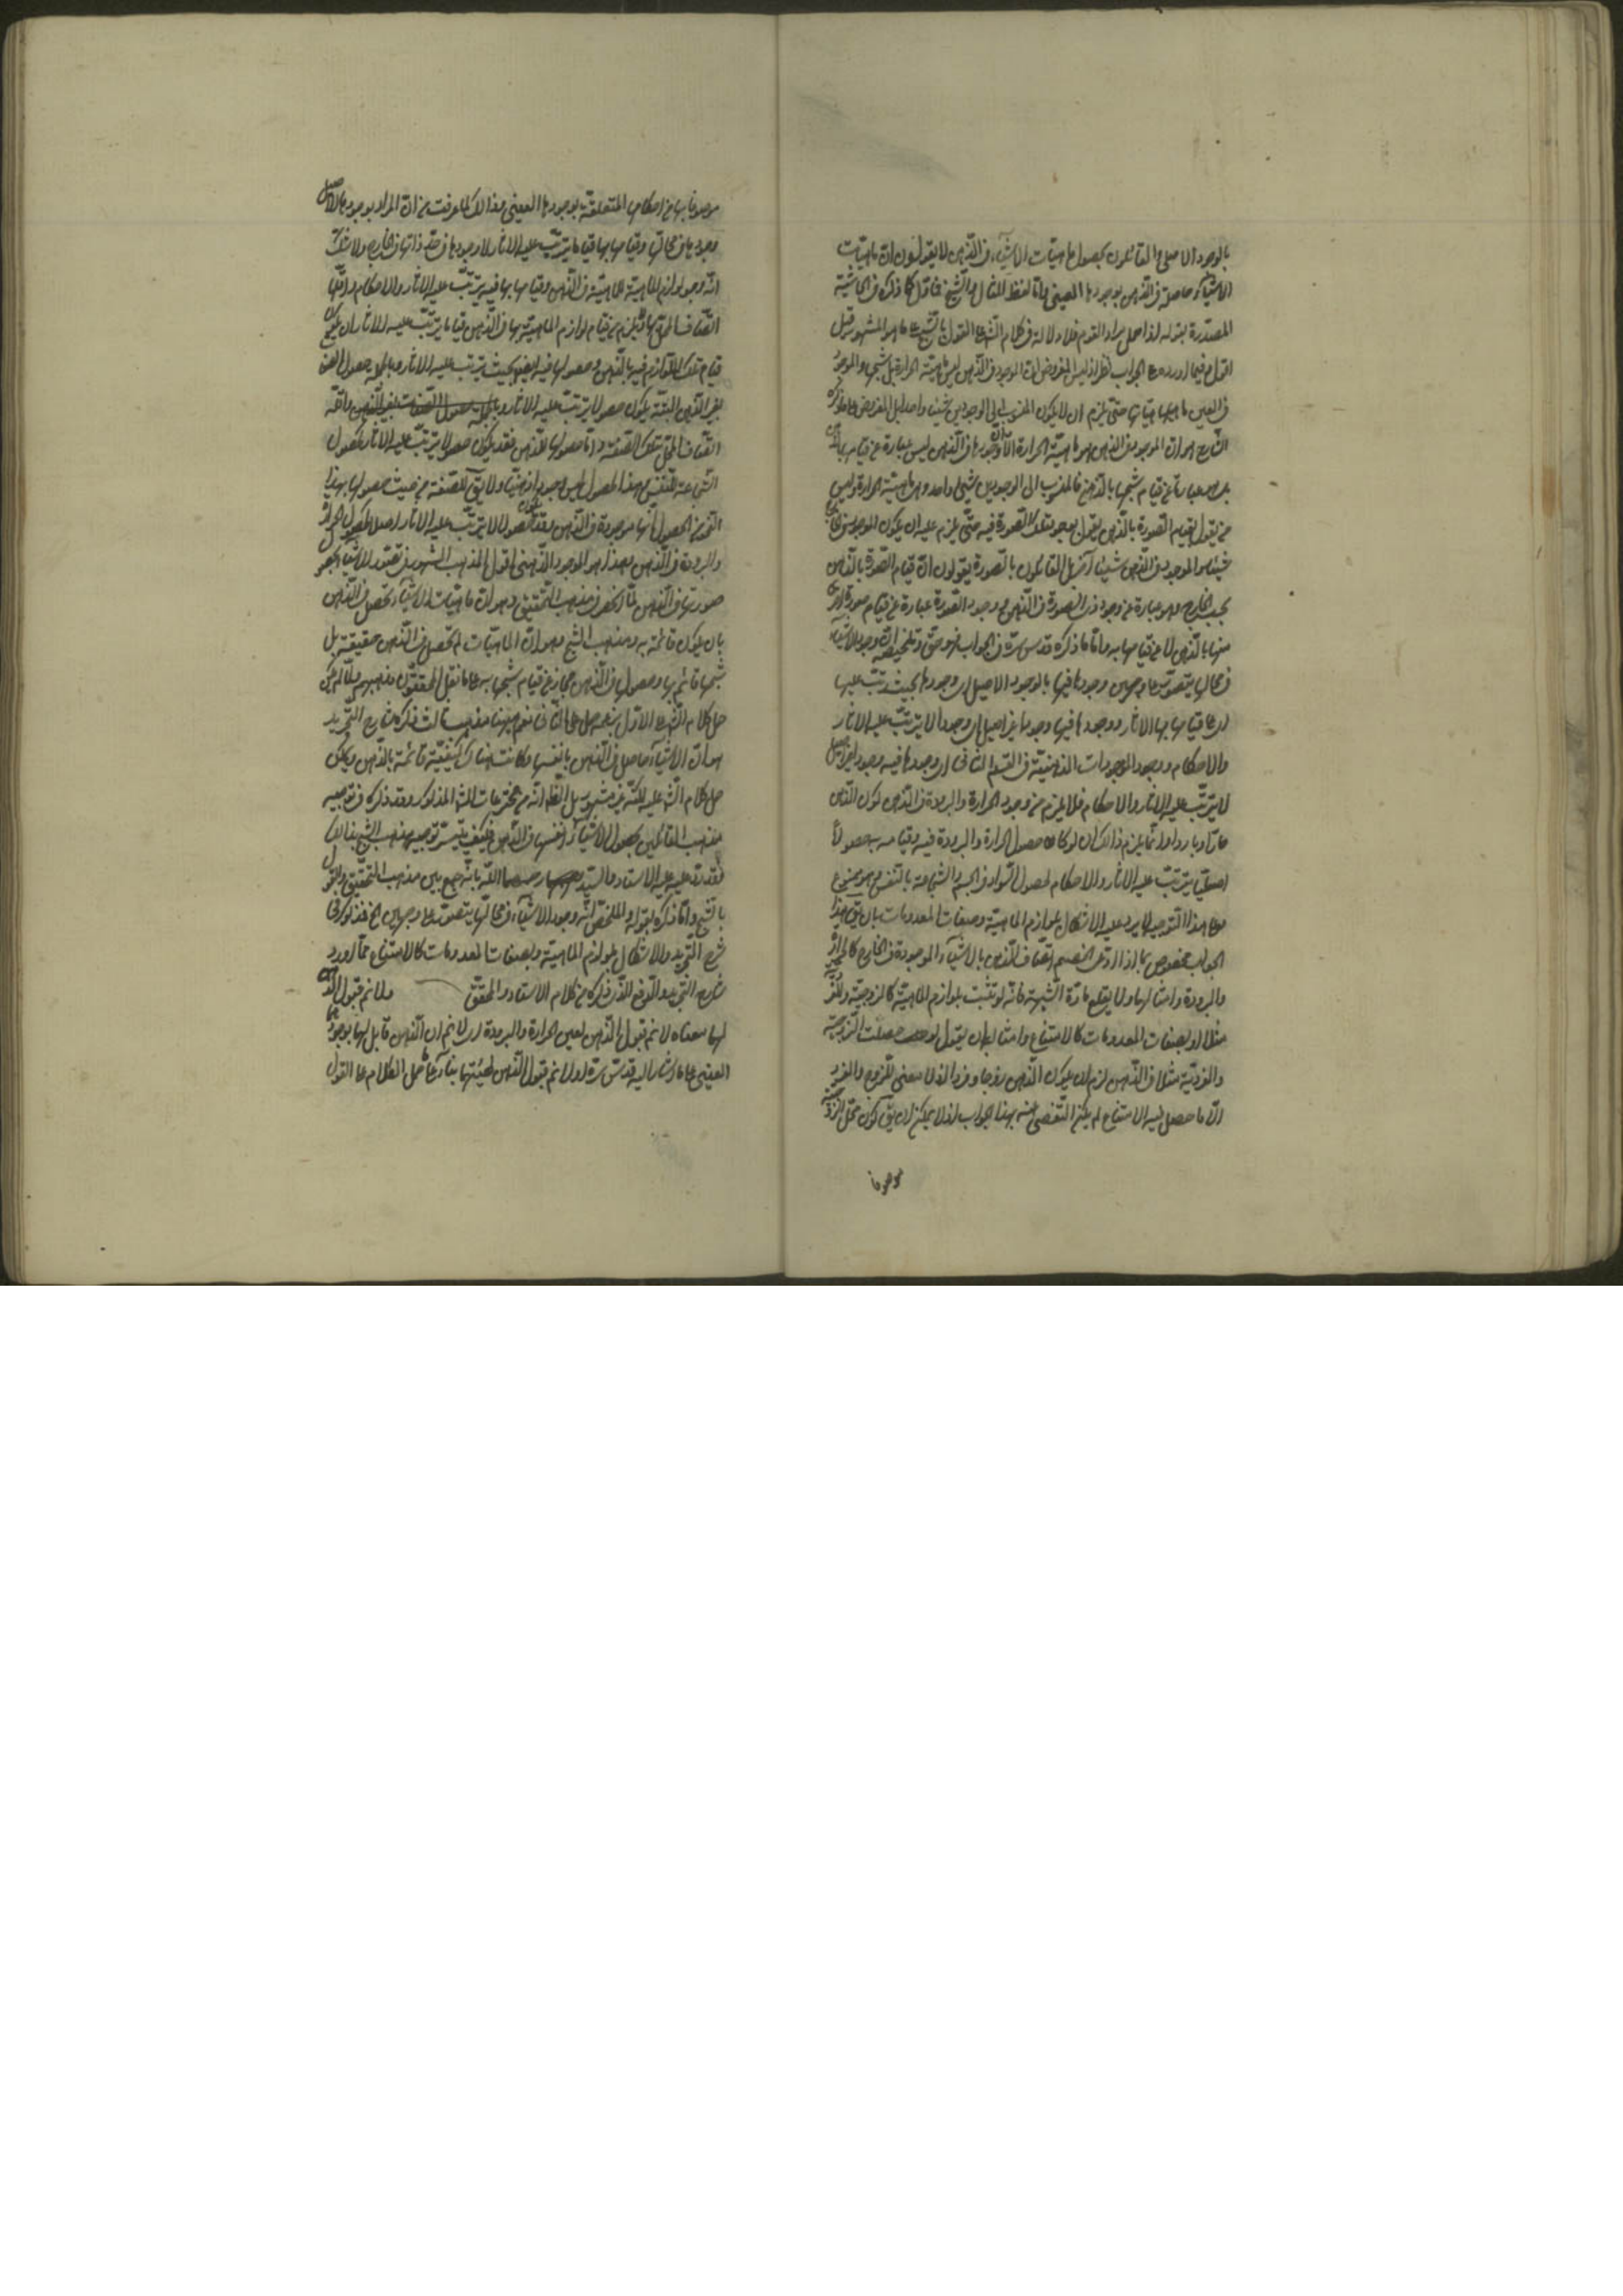 بالوجود الاصلى والقائلون بحصول ماهيّات الاشيآء فى الذّهن لا يقولون انّ ماهيّات
الاشيآء حاصلة فى الذّهن بوجودها العينى
المصدّرة بقوله فلا دلالة فى كلام الشّارح على القول بالشّبح على ما هو المشهور قيل
الجواب نظر اذ ليس المفروض انّ الموجود فى الذّهن ليس ماهيّة الحرارة بل شبحها والموجود
فى العين ماهيّاتها حتّى يلزم ان لا يكون المنسوب الى الوجودين شيئا واحدا بل المفروض على ما ذكره
الشّارح هو انّ الموجود فى الذّهن هو ماهيّة الحرارة الّا انّ وجودها فى الذّهن ليس عبارة عن قيامها
بل هو عبارة عن قيام شبحها بالذّهن فالمنسوب الى الوجودين شىء واحد وهى ماهيّة الحرارة وليس
من يقول بقيام الصّورة بالذّهن يقول بوجود تلك الصّورة فيه حتّى يلزم عليه ان يكون الموجود فى
شيئا والموجود فى الذّهن شيئا آخر بل القائلون بالصّورة يقولون انّ قيام الصّورة بالذّهن
بحسب الخارج وهو عبارة عن وجود ذى الصّورة فى الذّهن ووجود الصّورة عبارة عن قيام صورة اخرى
منها بالذّهن لا عن قيامها به وامّا ما ذكره قدّس سرّه فى الجواب فهو حقّ وتلخيصه انّ وجود الاشيآء
فى محالّها يتصوّر على وجهين وجودها فيها بالوجود الاصيل اى وجودها بحيث يترتّب عليها
اى على قيامها بها الآثار ووجودها فيها وجودا غير اصيل اى وجودا لا يترتّب عليه الآثار
والاحكام ووجود الموجودات الذهنيّة من القسم الثانى اى وجودها فيه وجود غير اصيل
لا يترتّب عليه الآثار والاحكام فلا يلزم من وجود الحرارة والبرودة فى الذّهن كون الذّهن
حارّا وباردا وانّما يلزم ذلك ان لو كان حصول الحرارة والبرودة فيه وقيامه به حصولا
اصيليّا يترتّب عليه الآثار والاحكام كحصول السّواد فى الجسم والشّجاعة بالنّفس وهو ممنوع
وعلى هذا التّوجيه لا يرد عليه الاشكال بلوازم الماهيّة وصفات المعدومات بان يقال هذا
الجواب مخصوص بما اذا ادّعى الخصم اتّصاف الذّهن بالاشيآء الموجودة فى الخارج كالحرارة
والبرودة وامثالها ولا يقلع مادّة الشّبهة فانّه لو تشبّث بلوازم الماهيّة كالزّوجيّة والفرديّة
مثلا او بصفات المعدومات كالامتناع وامثاله بان يقول لو حصلت الزّوجيّة
والفرديّة مثلا فى الذّهن لزم ان يكون الذّهن زوجا وفردا اذ لا معنى للزّوج والفرد
الّا ما حصل فيه الامتناع لم يكن التّفصّى عنه بهذا الجواب اذ لا يمكن ان يقال كون محلّ الزّوجيّة
موصوفا
موصوفا بها من احكامها المتعلّقة بوجودها العينى وذلك لما عرفت من انّ المراد بوجودها الاصيل
وجودها فى محالّها وقيامها بها قياما يترتّب عليه الآثار لا وجودها فى حدّ ذاتها فى الخارج ولا شكّ
انّ وجود لوازم الماهيّة للماهيّة فى الذّهن وقيامها بها قد يترتّب عليه الآثار والاحكام
اتّصاف المحلّ بها ولا يلزم من قيام لوازم الماهيّة بها فى الذّهن قياما يترتّب عليه الآثار ان يكون
قيام تلك اللّوازم فيها بالذّهن وحصولها فيه ايضا بحيث يترتّب عليه الآثار وبالجملة حصول الصّفة
لغير الذّهن البتّة يكون حصولا يترتّب عليه الآثار
اتّصاف المحلّ بتلك الصّفة وامّا حصولها للذّهن فقد يكون حصولا يترتّب عليه الآثار كحصول
الشّجاعة للنّفس وهذا الحصول ليس وجودا ذهنيّا ولا يقال للصّفة من حيث حصولها بهذا
النّحو من الحصول انّها موجودة فى الذّهن وقد يكون حصولا لا يترتّب عليه الآثار اصلا كحصول الحرارة
والبرودة فى الذّهن وهذا هو الوجود الذّهنى اقول المذهب المشهور فى تصوّر الاشيآء بحصول
صورتها فى الذّهن لمّا انحصر فى مذهب التّحقيق وهو انّ ماهيّات الاشيآء تحصل فى الذّهن
بان يكون قائمة به ومذهب الشّبح وهو انّ الماهيّات لم تحصل فى الذّهن حقيقة بل
شبحها قائم بها وحصولها فى الذّهن مجاز عن قيام شبحها به على ما نقل المحقّقون مذهبهم ولمّا لم يمكن
حمل كلام الشّارح على الاوّل حمله على الثّانى نعم هيهنا مذهب ثالث ذكره شارح التّجريد
هو انّ الاشيآء حاصل فى الذّهن بانفسها وكانت هناك كيفيّة قائمة بالذّهن ويمكن
حمل كلام الشّارح عليه لكنّه غير مشهور بل الظّاهر انّه من مخترعات الشّارح المذكور وقد ذكره فى توجيه
مذهب القائلين بحصول الاشيآء بانفسها فى الذّهن فكيف يتيسّر توجيه مذهب الشّبح بذلك
فقد ردّ عليه الاستاد والسّيّد بانّه جمع بين مذهب التّحقيق والقول
بالشّبح وامّا ذكره بقوله والملخّص انّ وجود الاشيآء فى محالّها يتصوّر على وجهين الخ فمذكور فى
شرح التّجريد والاشكال بلوازم الماهيّة وبصفات المعدومات كالامتناع ممّا اورده
شارح التّجريد والدّفع الّذى ذكره من كلام الاستاد المحقّق ولا نم قبول الذّهن
لها معناه لا نم قبول الذّهن لعين الحرارة والبرودة اى لا نم انّ الذّهن قابل لها بوجودها
العينى على ما اشار اليه قدّس سرّه او لا نم قبول الذّهن لعينها بناء على حمل الكلام على القول